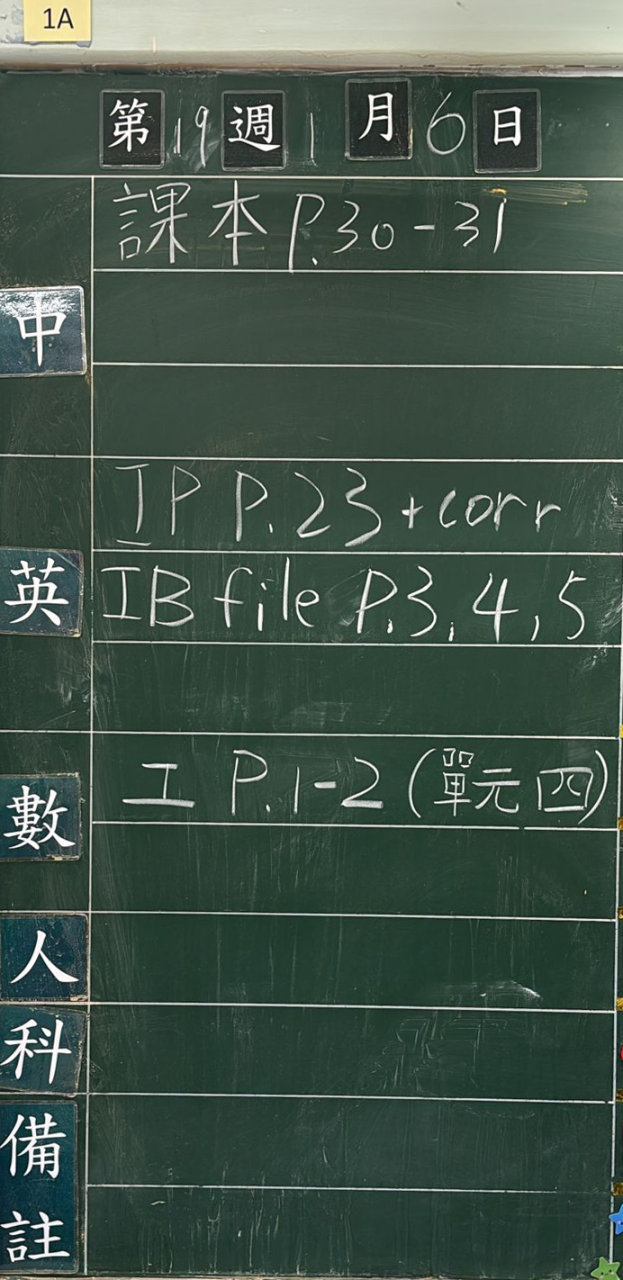 1A
第19週1月6日
課本P.30-31
中
IP P.23+corr
英
IB file P.3,4,5
數
工 P.1-2(單元四)
人
科
備
註